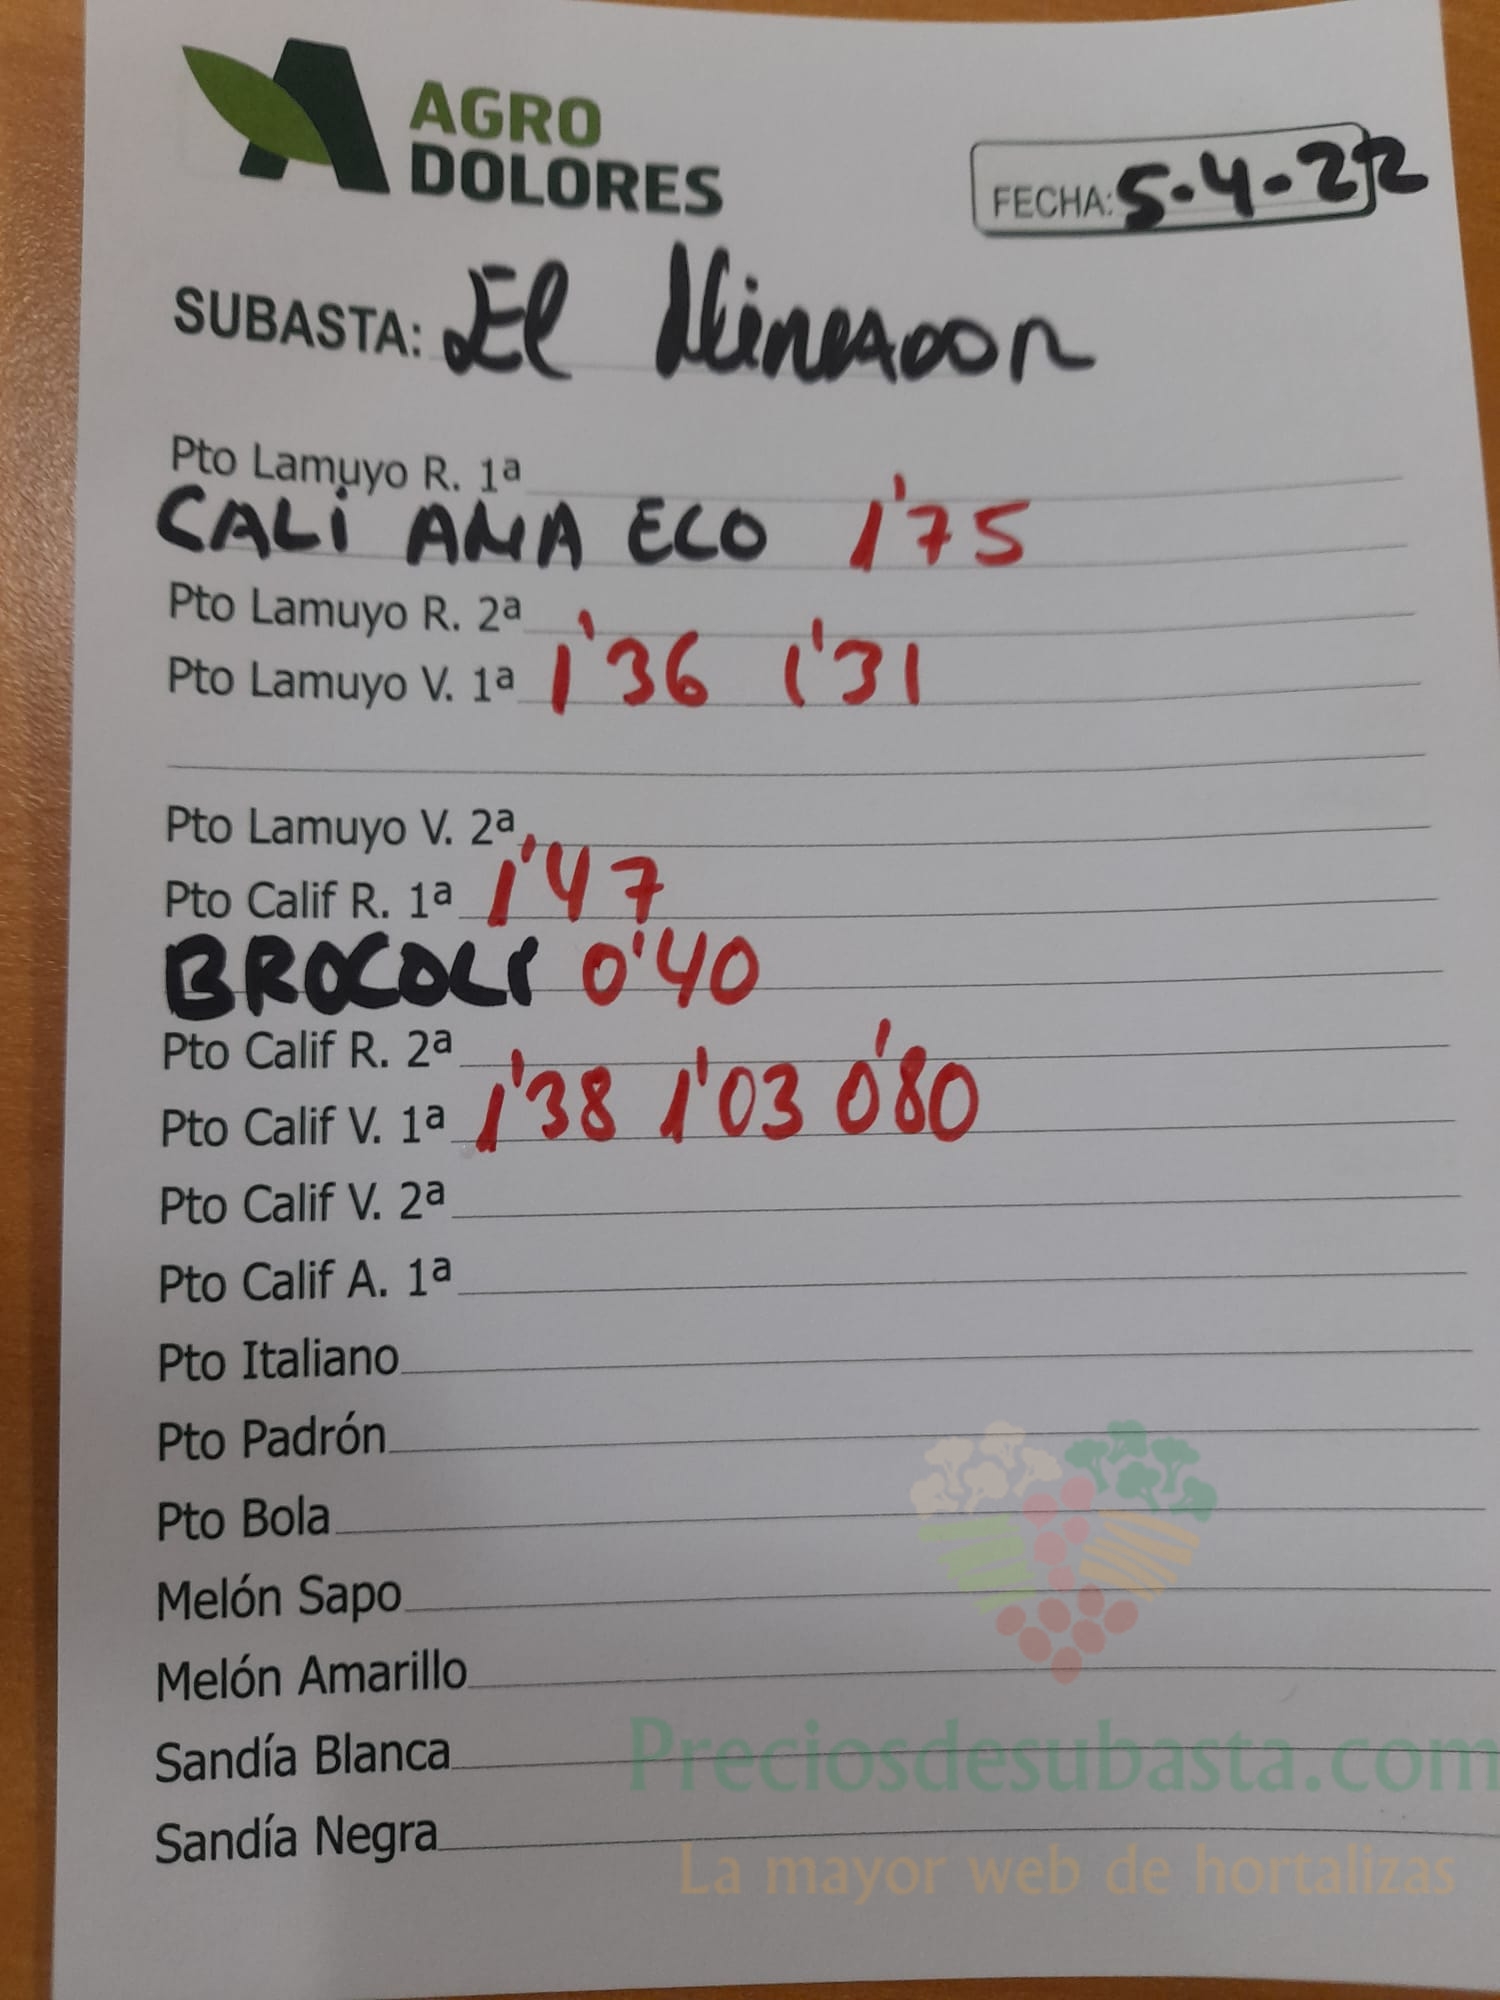 AGRO
DOLORES
FECHA: 5-4-22
SUBASTA: El Mirador
Pto Lamuyo R. 1ª
CALi AMA ECO 1'75
Pto Lamuyo R. 2ª
Pto Lamuyo V. 1ª 1'36 1'31
Pto Lamuyo V. 2ª
Pto Calif R. 1ª 1'47
BROCOLI 0'40
Pto Calif R. 2ª
Pto Calif V. 1ª 1'38 1'03 0'80
Pto Calif V. 2ª
Pto Calif A. 1ª
Pto Italiano
Pto Padrón
Pto Bola
Melón Sapo
Melón Amarillo
Sandía Blanca
Preciosdesubasta.com
Sandía Negra
La mayor web de hortalizas